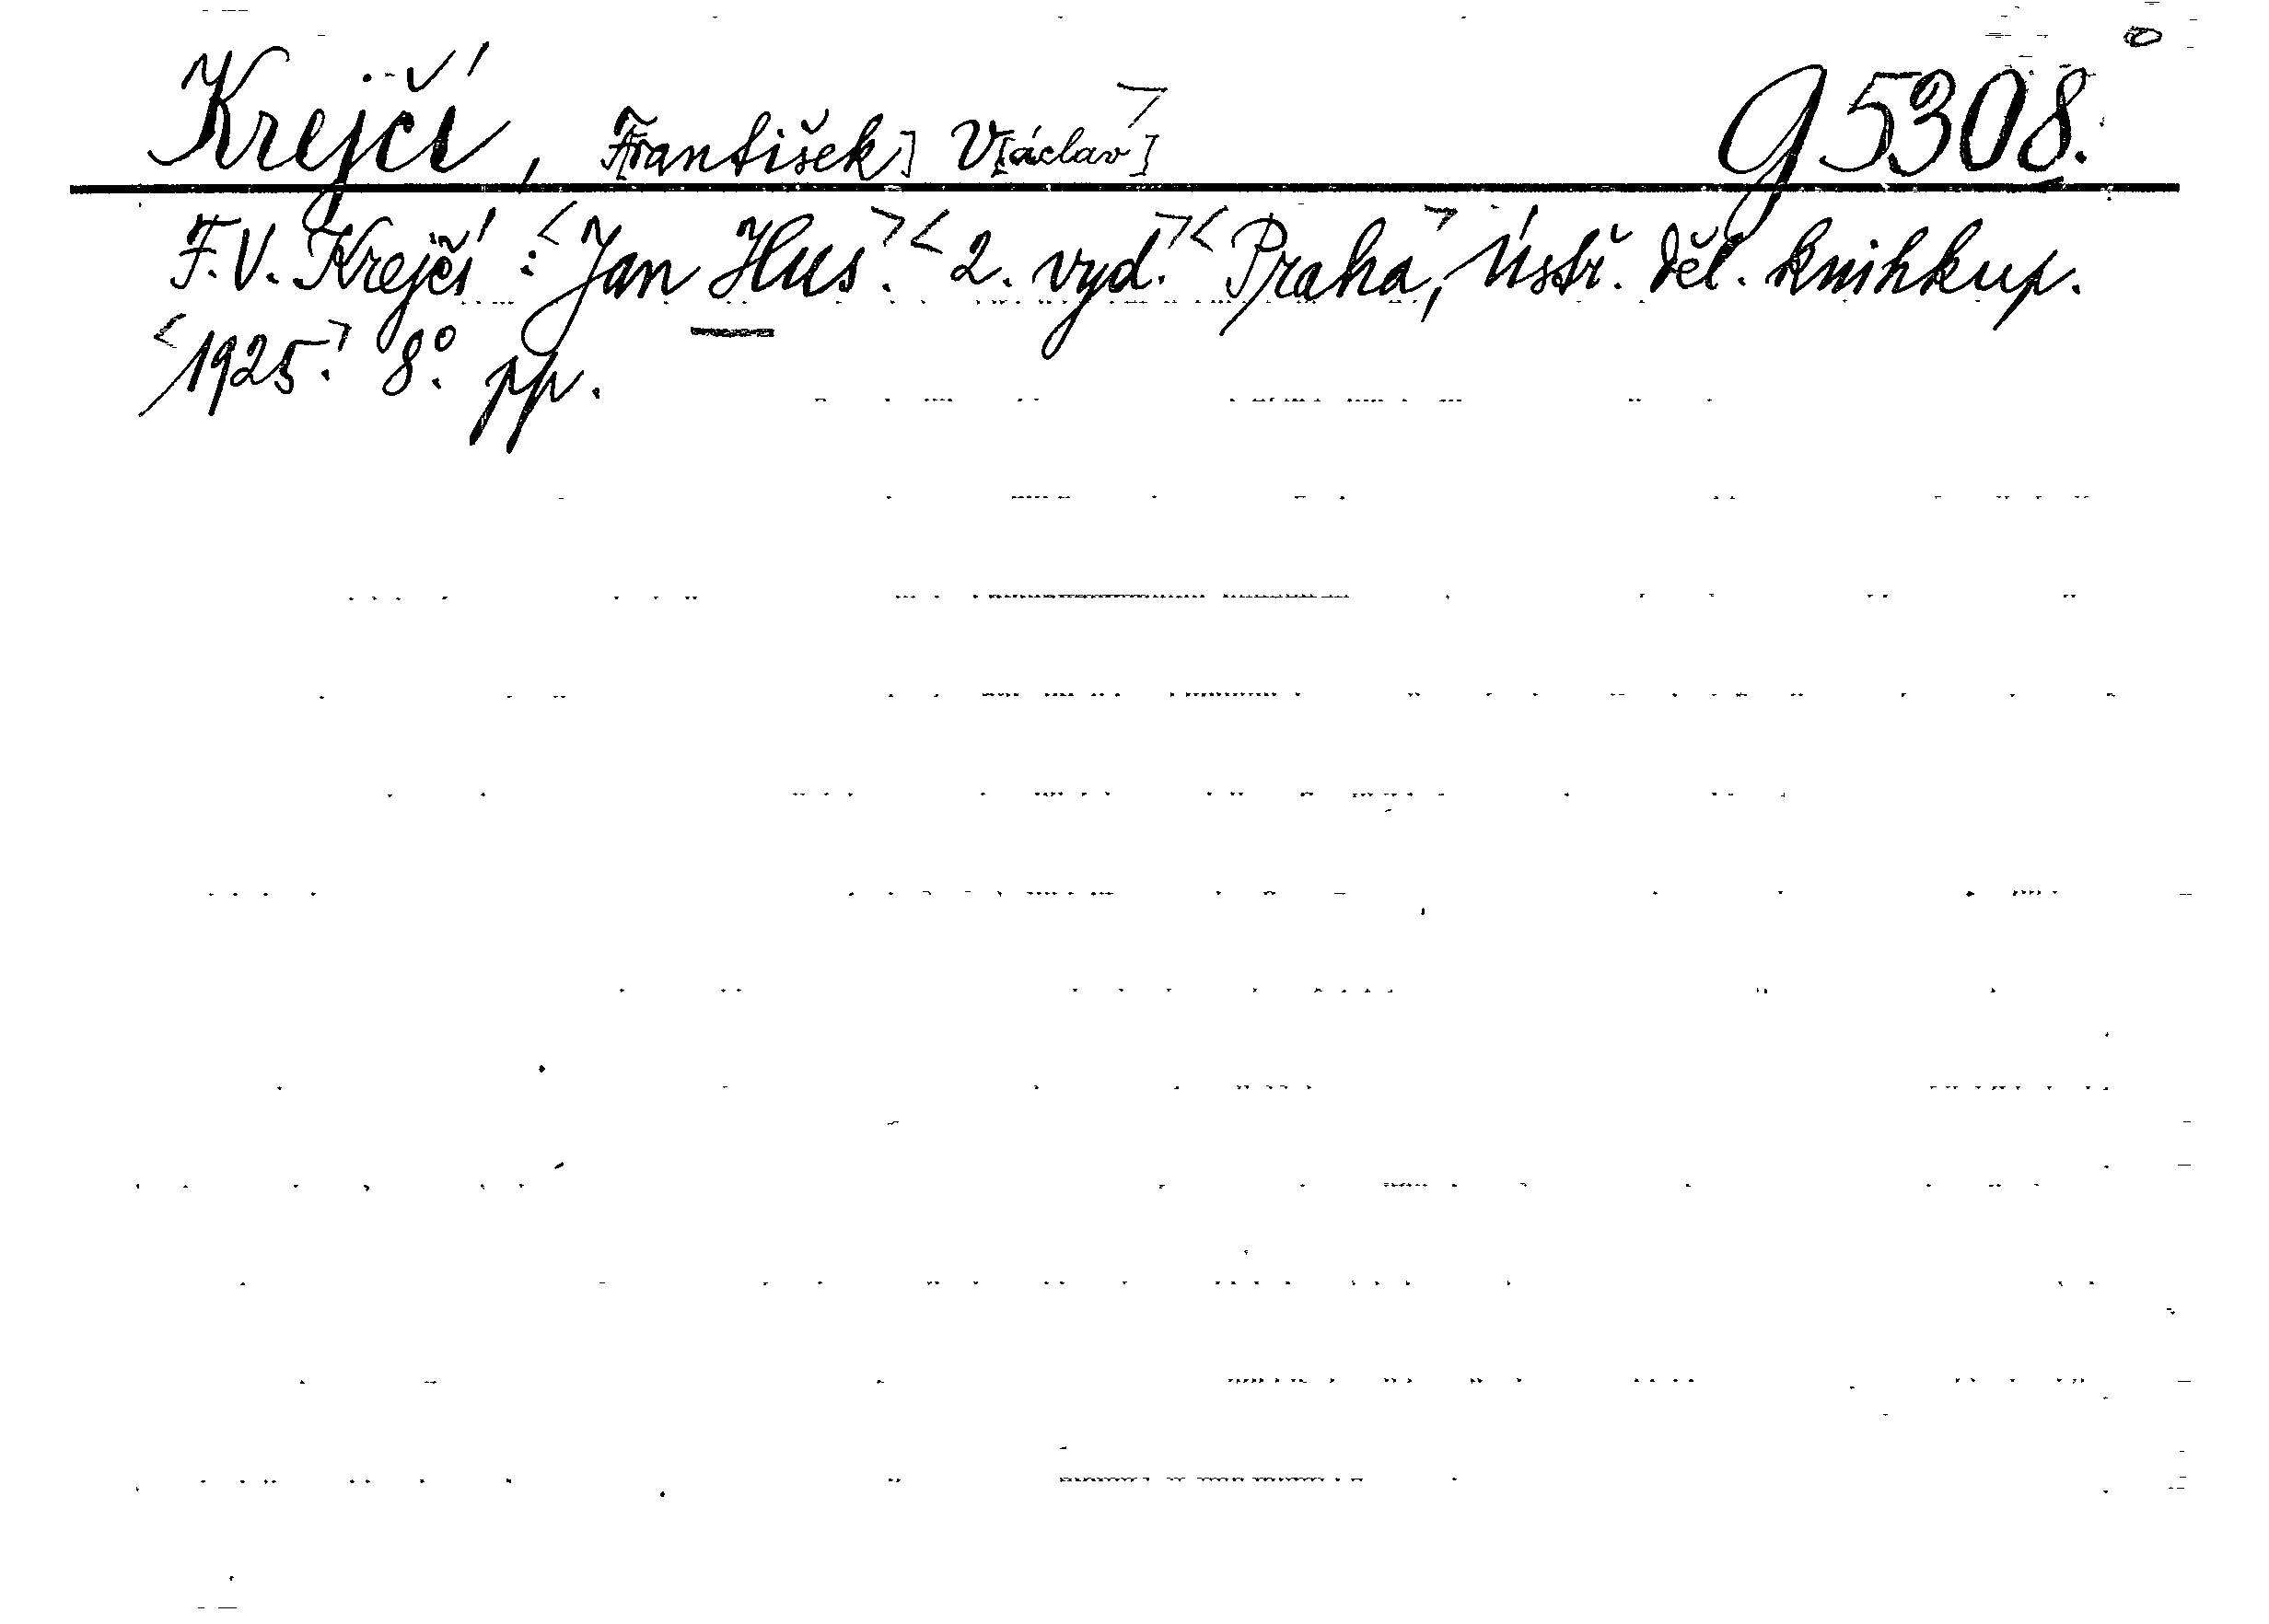 Krejčí, F[rantišek] V[áclav] G 5308.
F. V. Krejčí: <Jan Hus.> <2. vyd.> <Praha,> Ústř. děl. knihkup.
<1925.> 8°. pp.